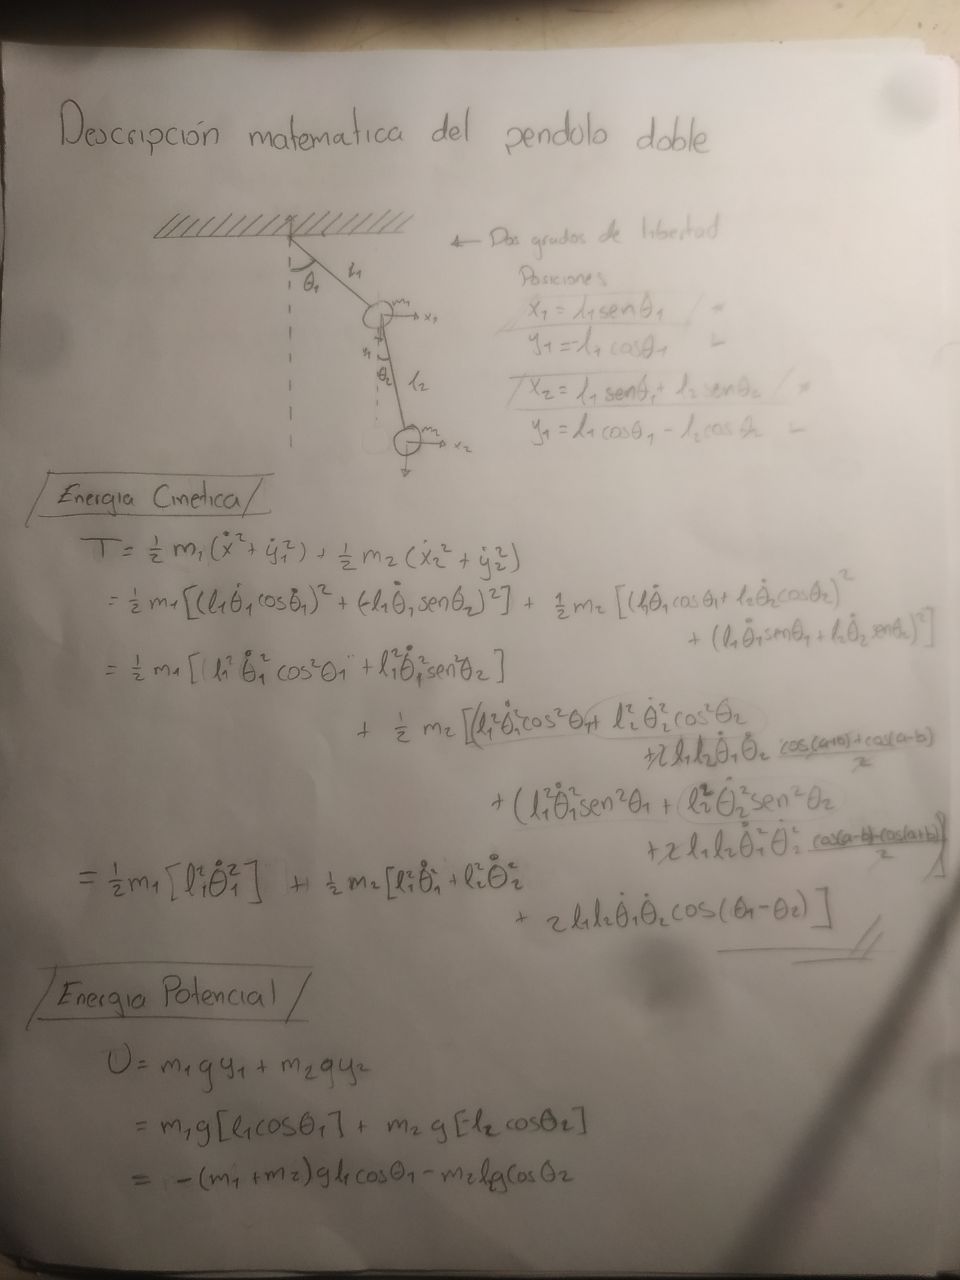 Descripción matematica del pendolo doble
← Dos grados de libertad
θ₁ l₁
Posiciones
m₁ x₁
x₁ = l₁ senθ₁
y₁
y₁ = -l₁ cosθ₁
θ₂ l₂
x₂ = l₁ senθ₁ + l₂ senθ₂
m₂ x₂
y₁ = l₁ cosθ₁ - l₂ cosθ₂
Energia Cinetica
T = ½ m₁ (ẋ² + ẏ₁²) + ½ m₂ (ẋ₂² + ẏ₂²)
= ½ m₁ [(l₁θ̇₁ cosθ̇₁)² + (-l₁θ̇₁ senθ₂)²] + ½ m₂ [(l₁θ̇₁ cosθ₁ + l₂θ̇₂ cosθ₂)²
+ (l₁θ̇₁ senθ₁ + l₂θ̇₂ senθ₂)²]
= ½ m₁ [(l₁² θ̇₁² cos²θ₁ + l₁²θ̇₁² sen²θ₂]
+ ½ m₂ [(l₁²θ̇₁² cos²θ₁ + l₂² θ̇₂² cos²θ₂
+2 l₁l₂θ̇₁θ̇₂ cos(a+b)+cos(a-b)/2
+ (l₁²θ̇₁² sen²θ₁ + l₂²θ̇₂² sen²θ₂
+2 l₁l₂θ̇₁²θ̇₂² cos(a-b)-cos(a+b)/2)]
= ½ m₁ [l₁²θ̇₁²] + ½ m₂ [l₁²θ̇₁² + l₂²θ̇₂²
+ 2 l₁l₂θ̇₁θ̇₂ cos(θ₁-θ₂)]
Energia Potencial
U = m₁gy₁ + m₂gy₂
= m₁g[l₁cosθ₁] + m₂g[-l₂cosθ₂]
= -(m₁+m₂)gl₁cosθ₁ - m₂l₂gcosθ₂